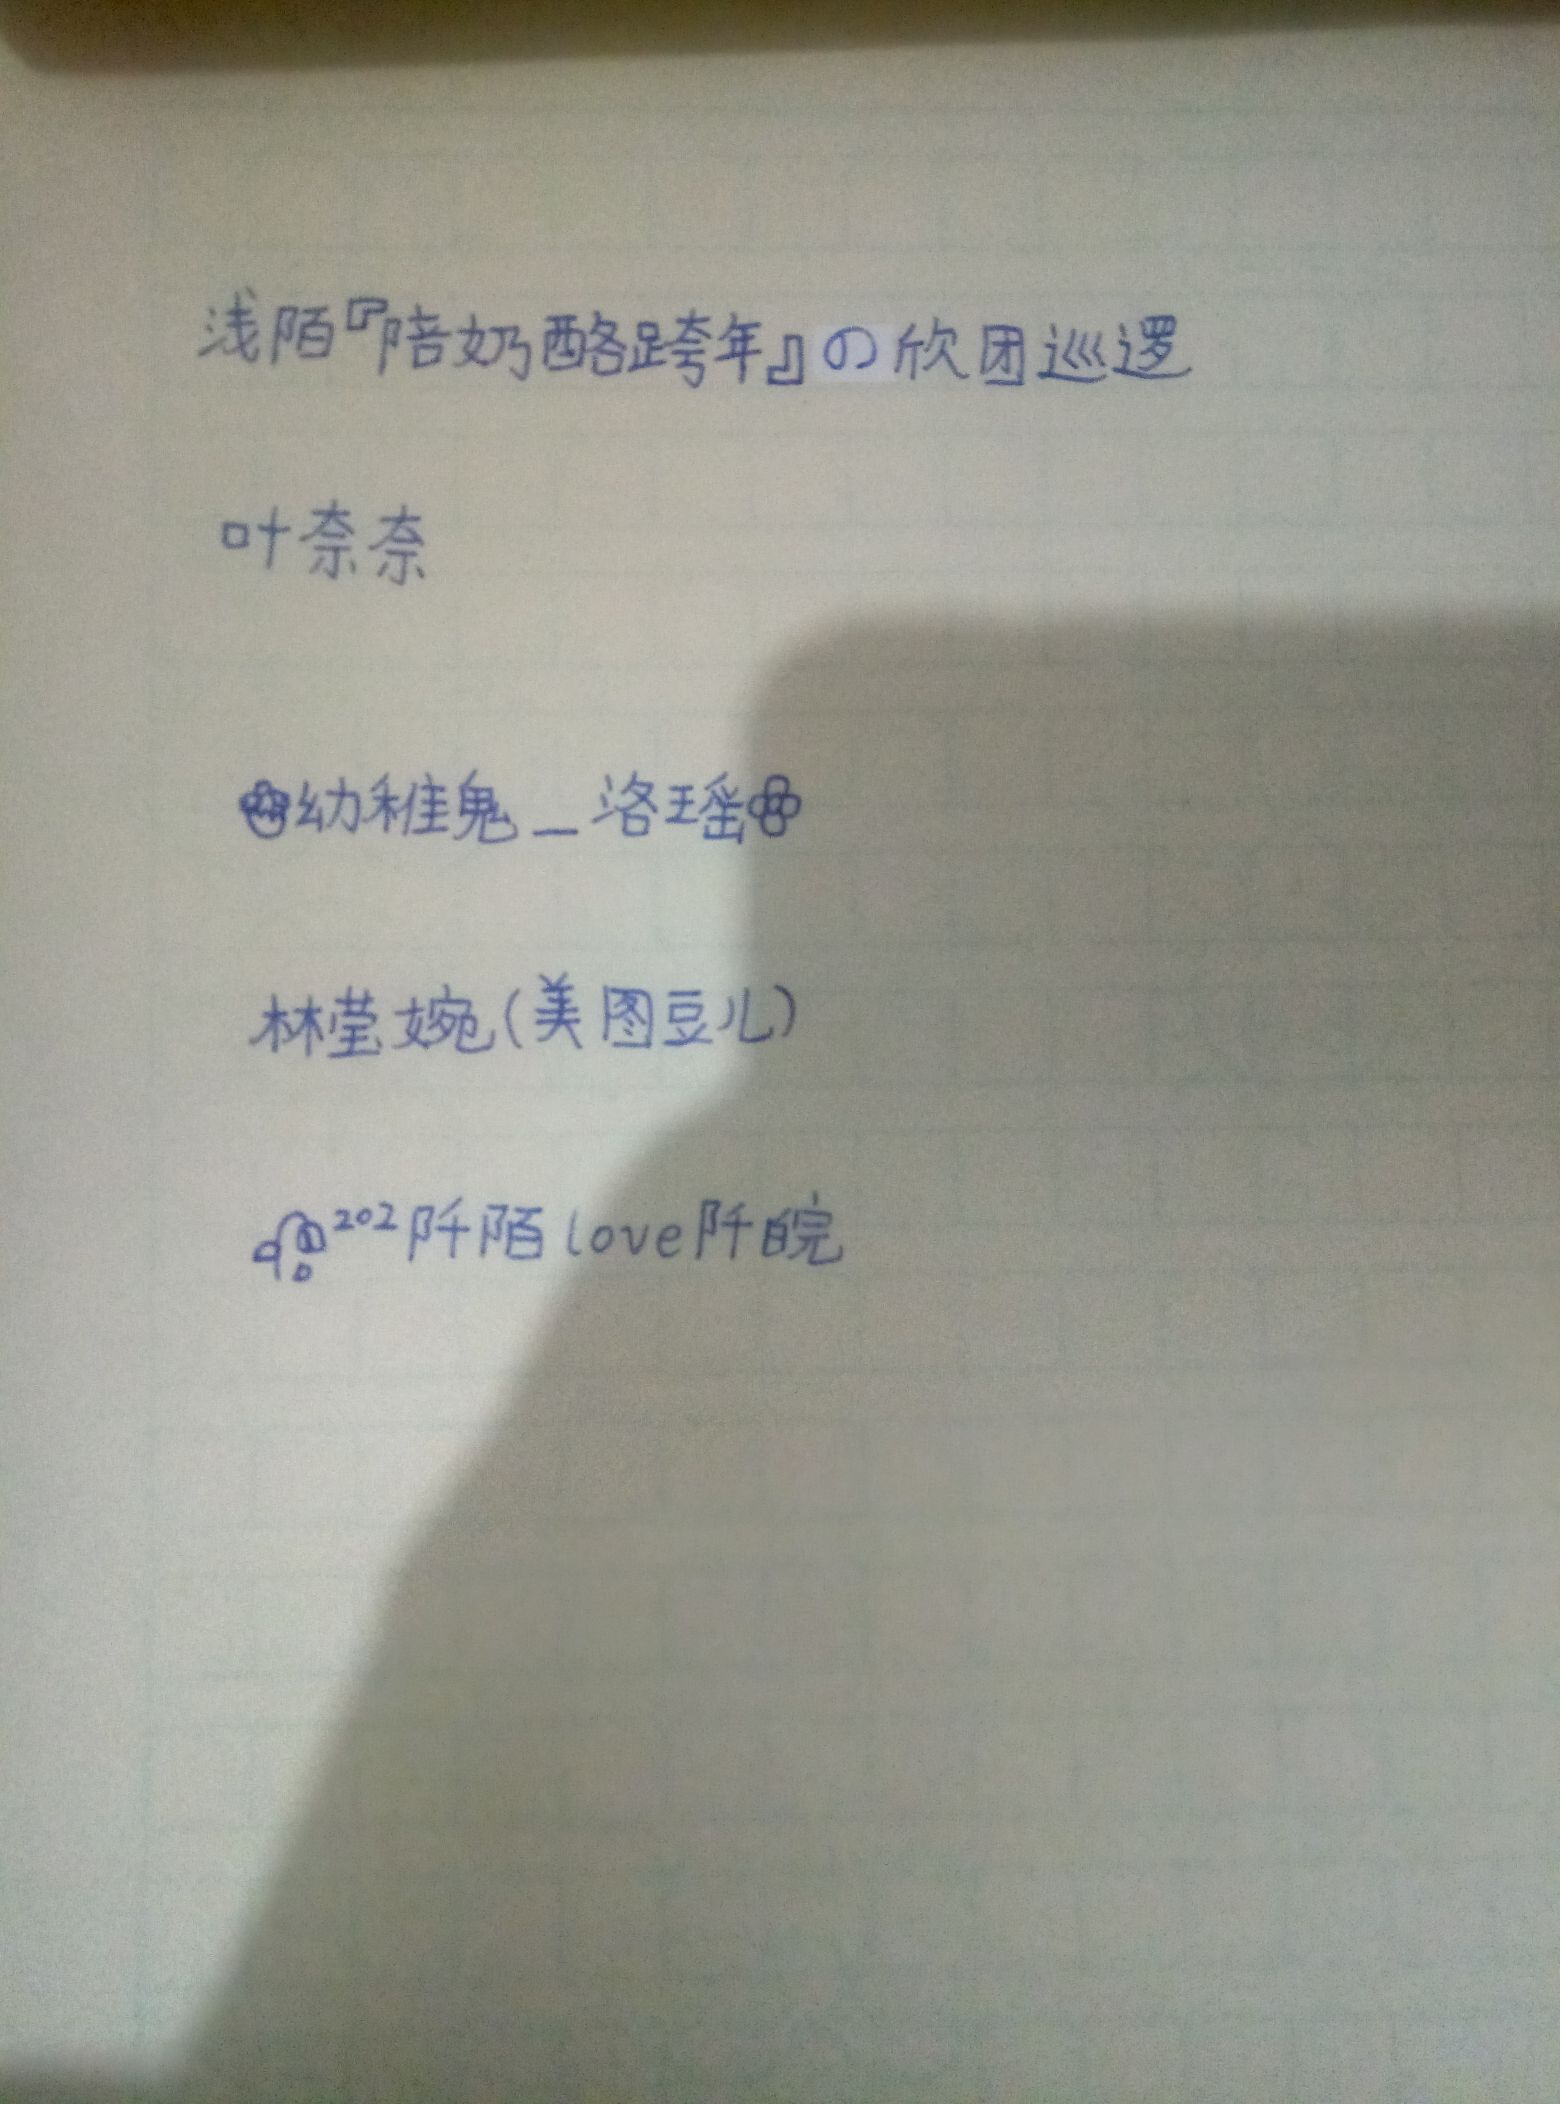 浅陌『陪奶酪跨年』の欣团巡逻
叶奈奈
幼稚鬼_洛瑶
林莹婉(美图豆儿)
²⁰²阡陌love阡皖